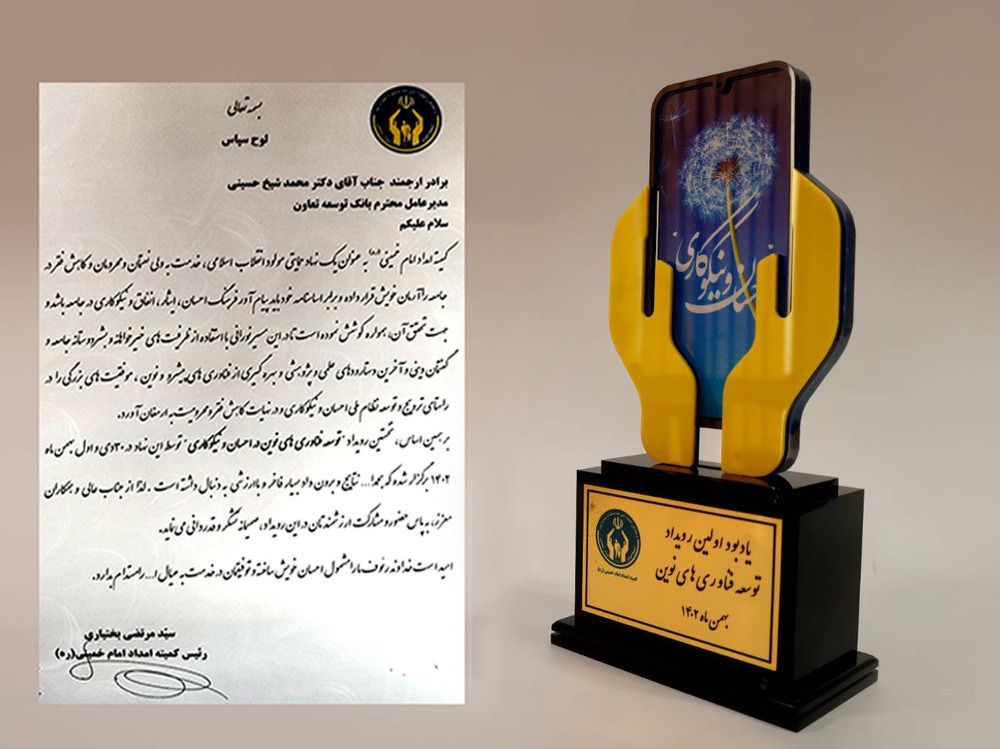 بسمه تعالی
لوح سپاس
برادر ارجمند جناب آقای دکتر محمد شیخ حسینی
مدیرعامل محترم بانک توسعه تعاون
سلام علیکم
کمیته امداد امام خمینی (ره) به عنوان یک نهاد حمایتی مولود انقلاب اسلامی، خدمت به ولی نعمتان و محرومان و کاهش فقر در
جامعه را آرمان خویش قرار داده و برابر اساسنامه خود باید پیام آور فرهنگ احسان، ایثار، انفاق و نیکوکاری در جامعه باشد و
جهت تحقق آن، همواره کوشش نموده است تا در این مسیر نورانی با استفاده از ظرفیت های خیرخواهانه و بشردوستانه جامعه و
گفتمان دینی و آخرین دستاوردهای علمی و پژوهشی و بهره گیری از فناوری های پیشرو و نوین، موفقیت های بزرگی را در
راستای ترویج و توسعه نظام ملی احسان و نیکوکاری و در نهایت کاهش فقر و محرومیت به ارمغان آورد.
بر همین اساس، نخستین رویداد "توسعه فناوری های نوین در احسان و نیکوکاری" توسط این نهاد در ۳۰ دی و اول بهمن ماه
۱۴۰۲ برگزار شده که بحمدا... نتایج و برون داد بسیار فاخر و باارزشی به دنبال داشته است. لذا از جناب عالی و همکاران
معزز، به پاس حضور و مشارکت ارزشمندتان در این رویداد، صمیمانه تشکر و قدردانی می نماید.
امید است خداوند رئوف ما را مشمول احسان خویش ساخته و توفیقتان در خدمت به عیال ا... را مستدام بدارد.
سیّد مرتضی بختیاری
رئیس کمیته امداد امام خمینی(ره)
و نیکوکاری
کمیته امداد امام خمینی (ره)
یادبود اولین رویداد
توسعه فناوری های نوین
بهمن ماه ۱۴۰۲